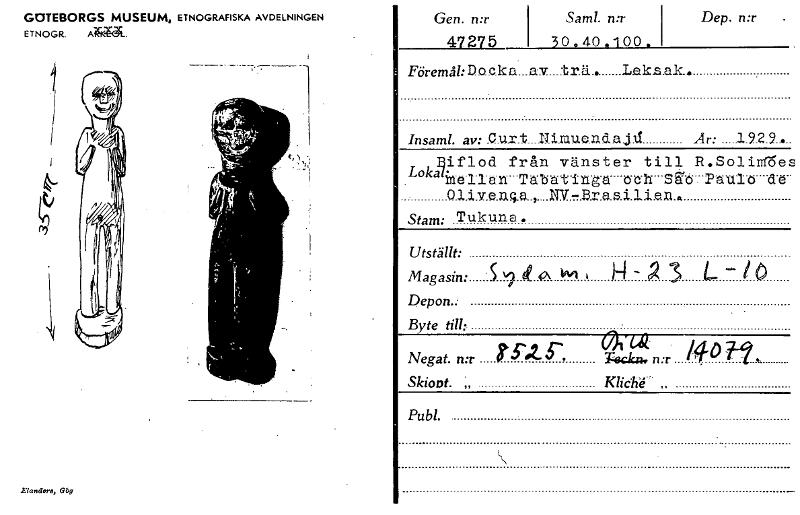 GÖTEBORGS MUSEUM, ETNOGRAFISKA AVDELNINGEN
ETNOGR. ARKEOL.
35 cm
Elanders, Gbg
Gen. n:r Saml. n:r Dep. n:r
47275 30.40.100.
Föremål: Docka av trä. Leksak.
Insaml. av: Curt Nimuendajú År: 1929.
Lokal: Biflod från vänster till R.Solimões
mellan Tabatinga och São Paulo de
Olivença, NV-Brasilien.
Stam: Tukuna.
Utställt:
Magasin: Sydam. H-23 L-10
Depon.:
Byte till:
Negat. n:r 8525. Teckn. Bild n:r 14079.
Skiopt. „ Kliché „
Publ.